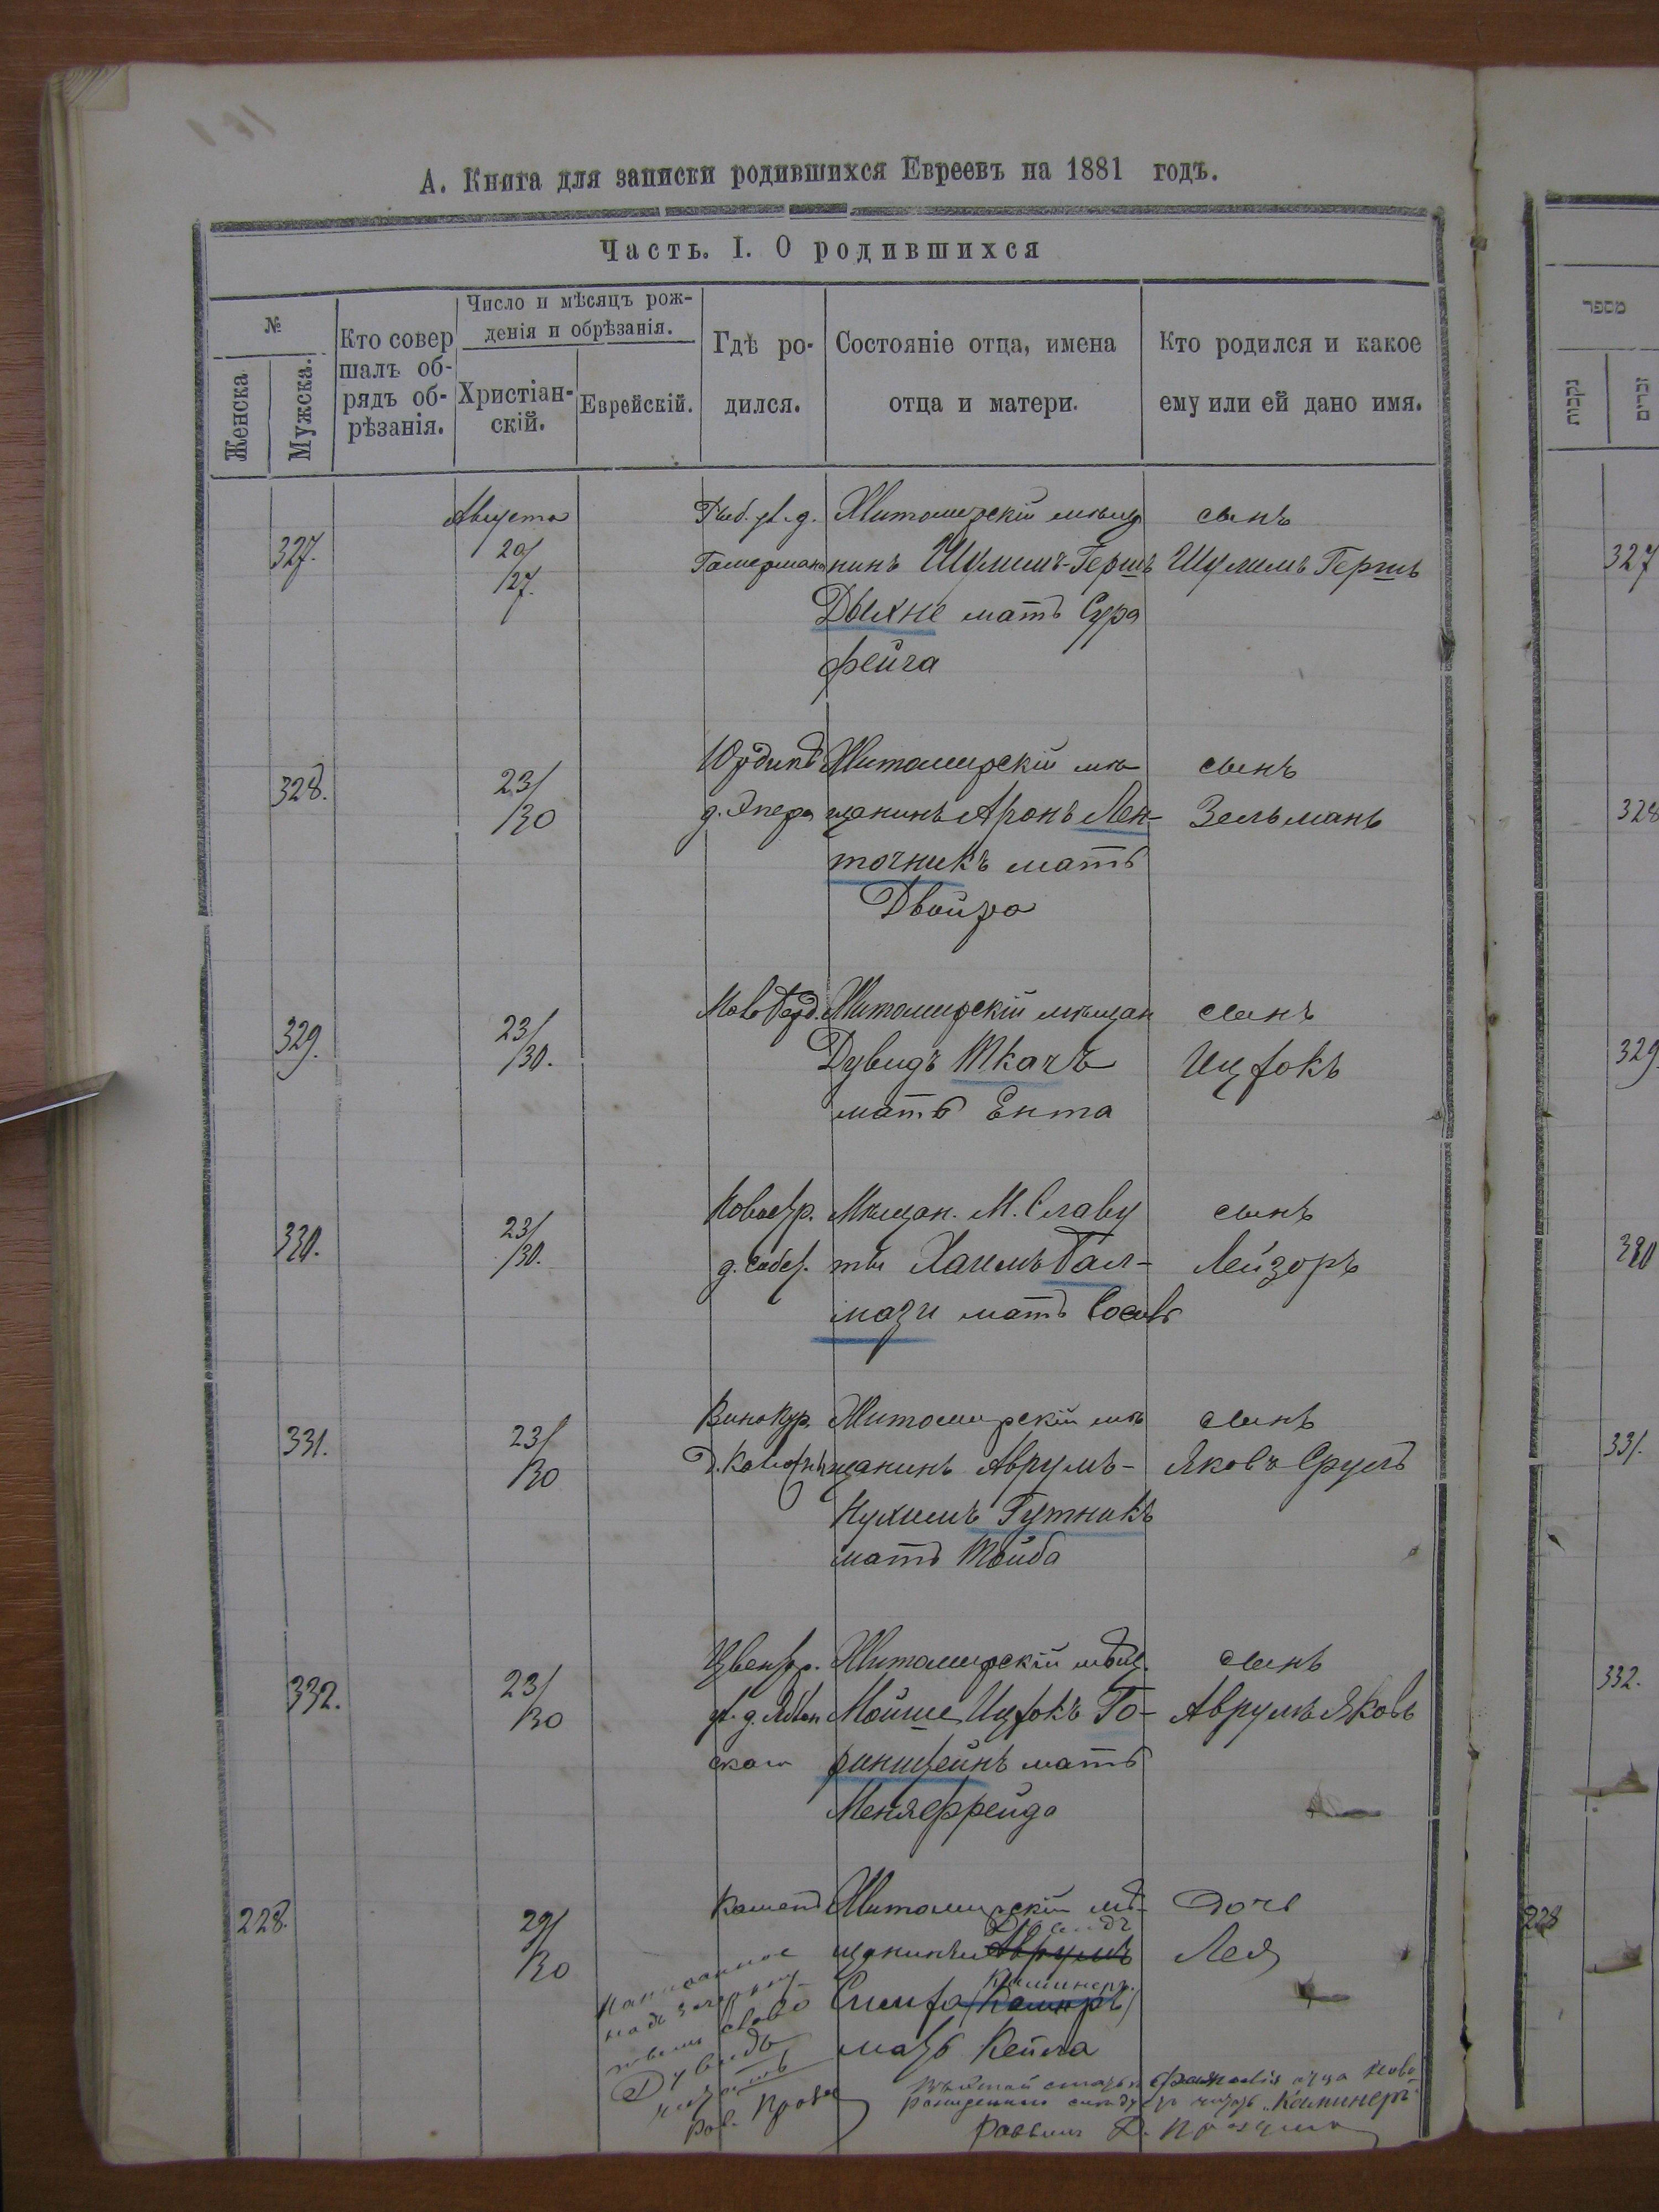 А. Книга для записки родившихся Евреевъ на 1881 годъ.
Часть. I. О родившихся
№
Женска
Мужска.
Кто совер
шалъ об-
рядъ об-
рѣзанія.
Число и мѣсяцъ рож-
денія и обрѣзанія.
Христіан-
скій.
Еврейскій.
Гдѣ ро-
дился.
Состояніе отца, имена
отца и матери.
Кто родился и какое
ему или ей дано имя.
327.
Августа
20/
/27.
Житомирскій мѣща
нинъ Шулимъ-Гершъ
Дыхне мать Сура
Фейга
сынъ
Шулимъ Гершъ
328.
23/
/30
Житомирскій мѣ
щанинъ Аронъ Лен-
точникъ мать
Двойра
сынъ
Зельманъ
329.
23/
/30.
Житомирскій мѣщан
Дувидъ Ткачъ
мать Ента
сынъ
Ицфокъ
330.
23/
/30.
Мѣщан. М. Славу
ты Хаимъ Гал-
мази мать Сосиъ
сынъ
Лейзоръ
331.
23/
/30
Винокур.
Житомирскій мѣ
щанинъ Аврумъ-
Нухимъ Гутникъ
мать Тойба
сынъ
Яковъ Сруль
332.
23/
/30
ского
Житомирскій мѣщ.
Мойше Ицфокъ Го-
ринштейнъ мать
Меня Фрейда
сынъ
Аврумъ Яковъ
228.
29/
/30
Житомирскій мѣ-
Дувидъ
щанинъ Аврумъ
Каминеръ.
мать Кейла
Дочь
Лея
Написанное
надъ зачеркну-
тымъ слово
Дувидъ
читать
Рав.
фамилія отца
читать „Каминеръ"
Раввинъ
מספר
נקבות
זכרים
327
328
329.
330
331.
332.
228